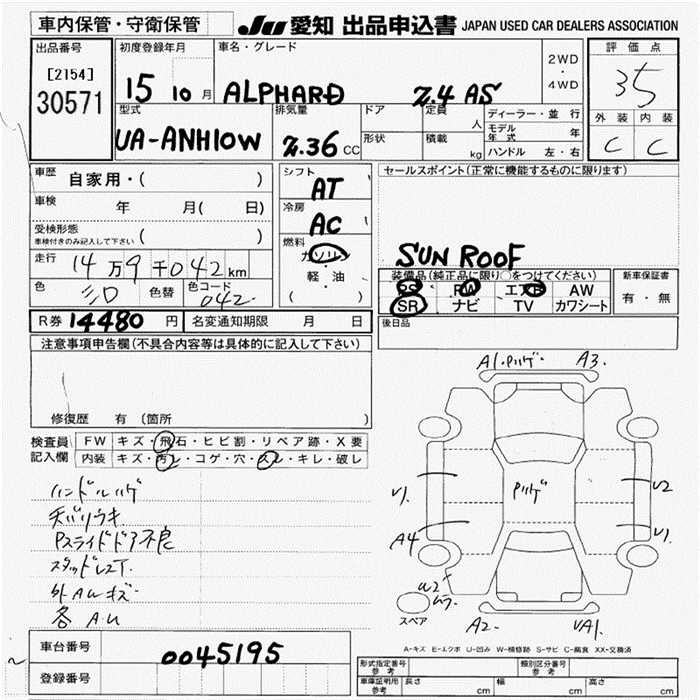 車内保管・守衛保管
JU 愛知 出品申込書 JAPAN USED CAR DEALERS ASSOCIATION
出品番号
[2154]
30571
初度登録年月
15 10 月
車名・グレード
ALPHARD 2.4 AS
2WD
・
4WD
評価点
35
外装 内装
C C
型式
UA-ANH10W
排気量
2.36 CC
ドア
形状
定員
人
積載
kg
ディーラー・並行
モデル年式 年
ハンドル 左・右
車歴 自家用・( )
車検 年 月( 日)
受検形態
車検付きのみ記入して下さい ( )
走行 14万9千042km
色 シロ 色替 色コード 042
シフト
AT
冷房
AC
燃料
ガソリン
軽・油
( )
R券 14480 円 名変通知期限 月 日
セールスポイント(正常に機能するものに限ります)
SUN ROOF
装備品(純正品に限り○をつけてください)
PS PW エアB AW
SR ナビ TV カワシート
新車保証書
有・無
後日品
注意事項申告欄(不具合内容等は具体的に記入して下さい)
修復歴 有 (箇所 )
検査員記入欄
FW キズ・飛石・ヒビ割・リペア跡・X要
内装 キズ・汚レ・コゲ・穴・スレ・キレ・破レ
ハンドルハゲ
天バリウキ
Pスライドドア不良
スタッドレスT.
外AUキズ
各AU
A1・Pハゲ A3
V1
Pハゲ
U2
A4
V1
W2
ムラ
スペア
A2
VA1
A-キズ E-エクボ U-凹み W-補修跡 S-サビ C-腐食 XX-交換済
車台番号 0045195
登録番号
形式指定番号
参考
類別区分番号
参考
車庫証明用
参考
長さ cm 幅 cm 高さ cm